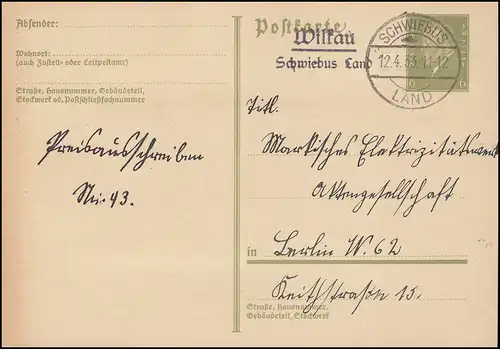 Absender:
Wohnort:
(auch Zustell- oder Leitpostamt)
Straße, Hausnummer, Gebäudeteil,
Stockwerk od. Postschließfachnummer
Preisausschreiben
Nr. 43.
Postkarte
Wilkau
Schwiebus Land
SCHWIEBUS
12.4.33.11-12
LAND
6
6
Titl.
Märkisches Elektrizitätswerk
Aktengesellschaft
in Berlin W. 62
Keithstraßn 15.
Straße, Hausnummer,
Gebäudeteil, Stockwerk